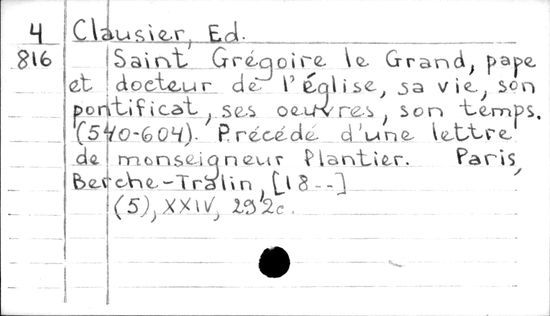 4 Clausier, Ed.
816 Saint Grégoire le Grand, pape
et docteur de l'église, sa vie, son
pontificat, ses oeuvres, son temps.
(540-604). Précédé d'une lettre
de monseigneur Plantier. Paris,
Berche-Tralin, [18--]
(5), XXIV, 292c.